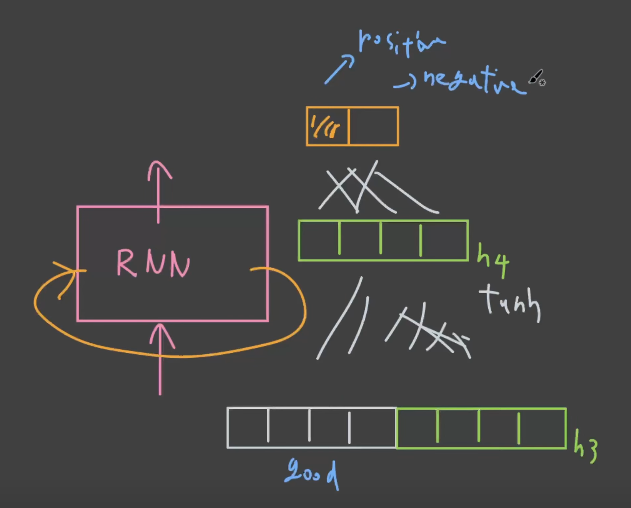 positive
negative
RNN
h4
tanh
h3
good